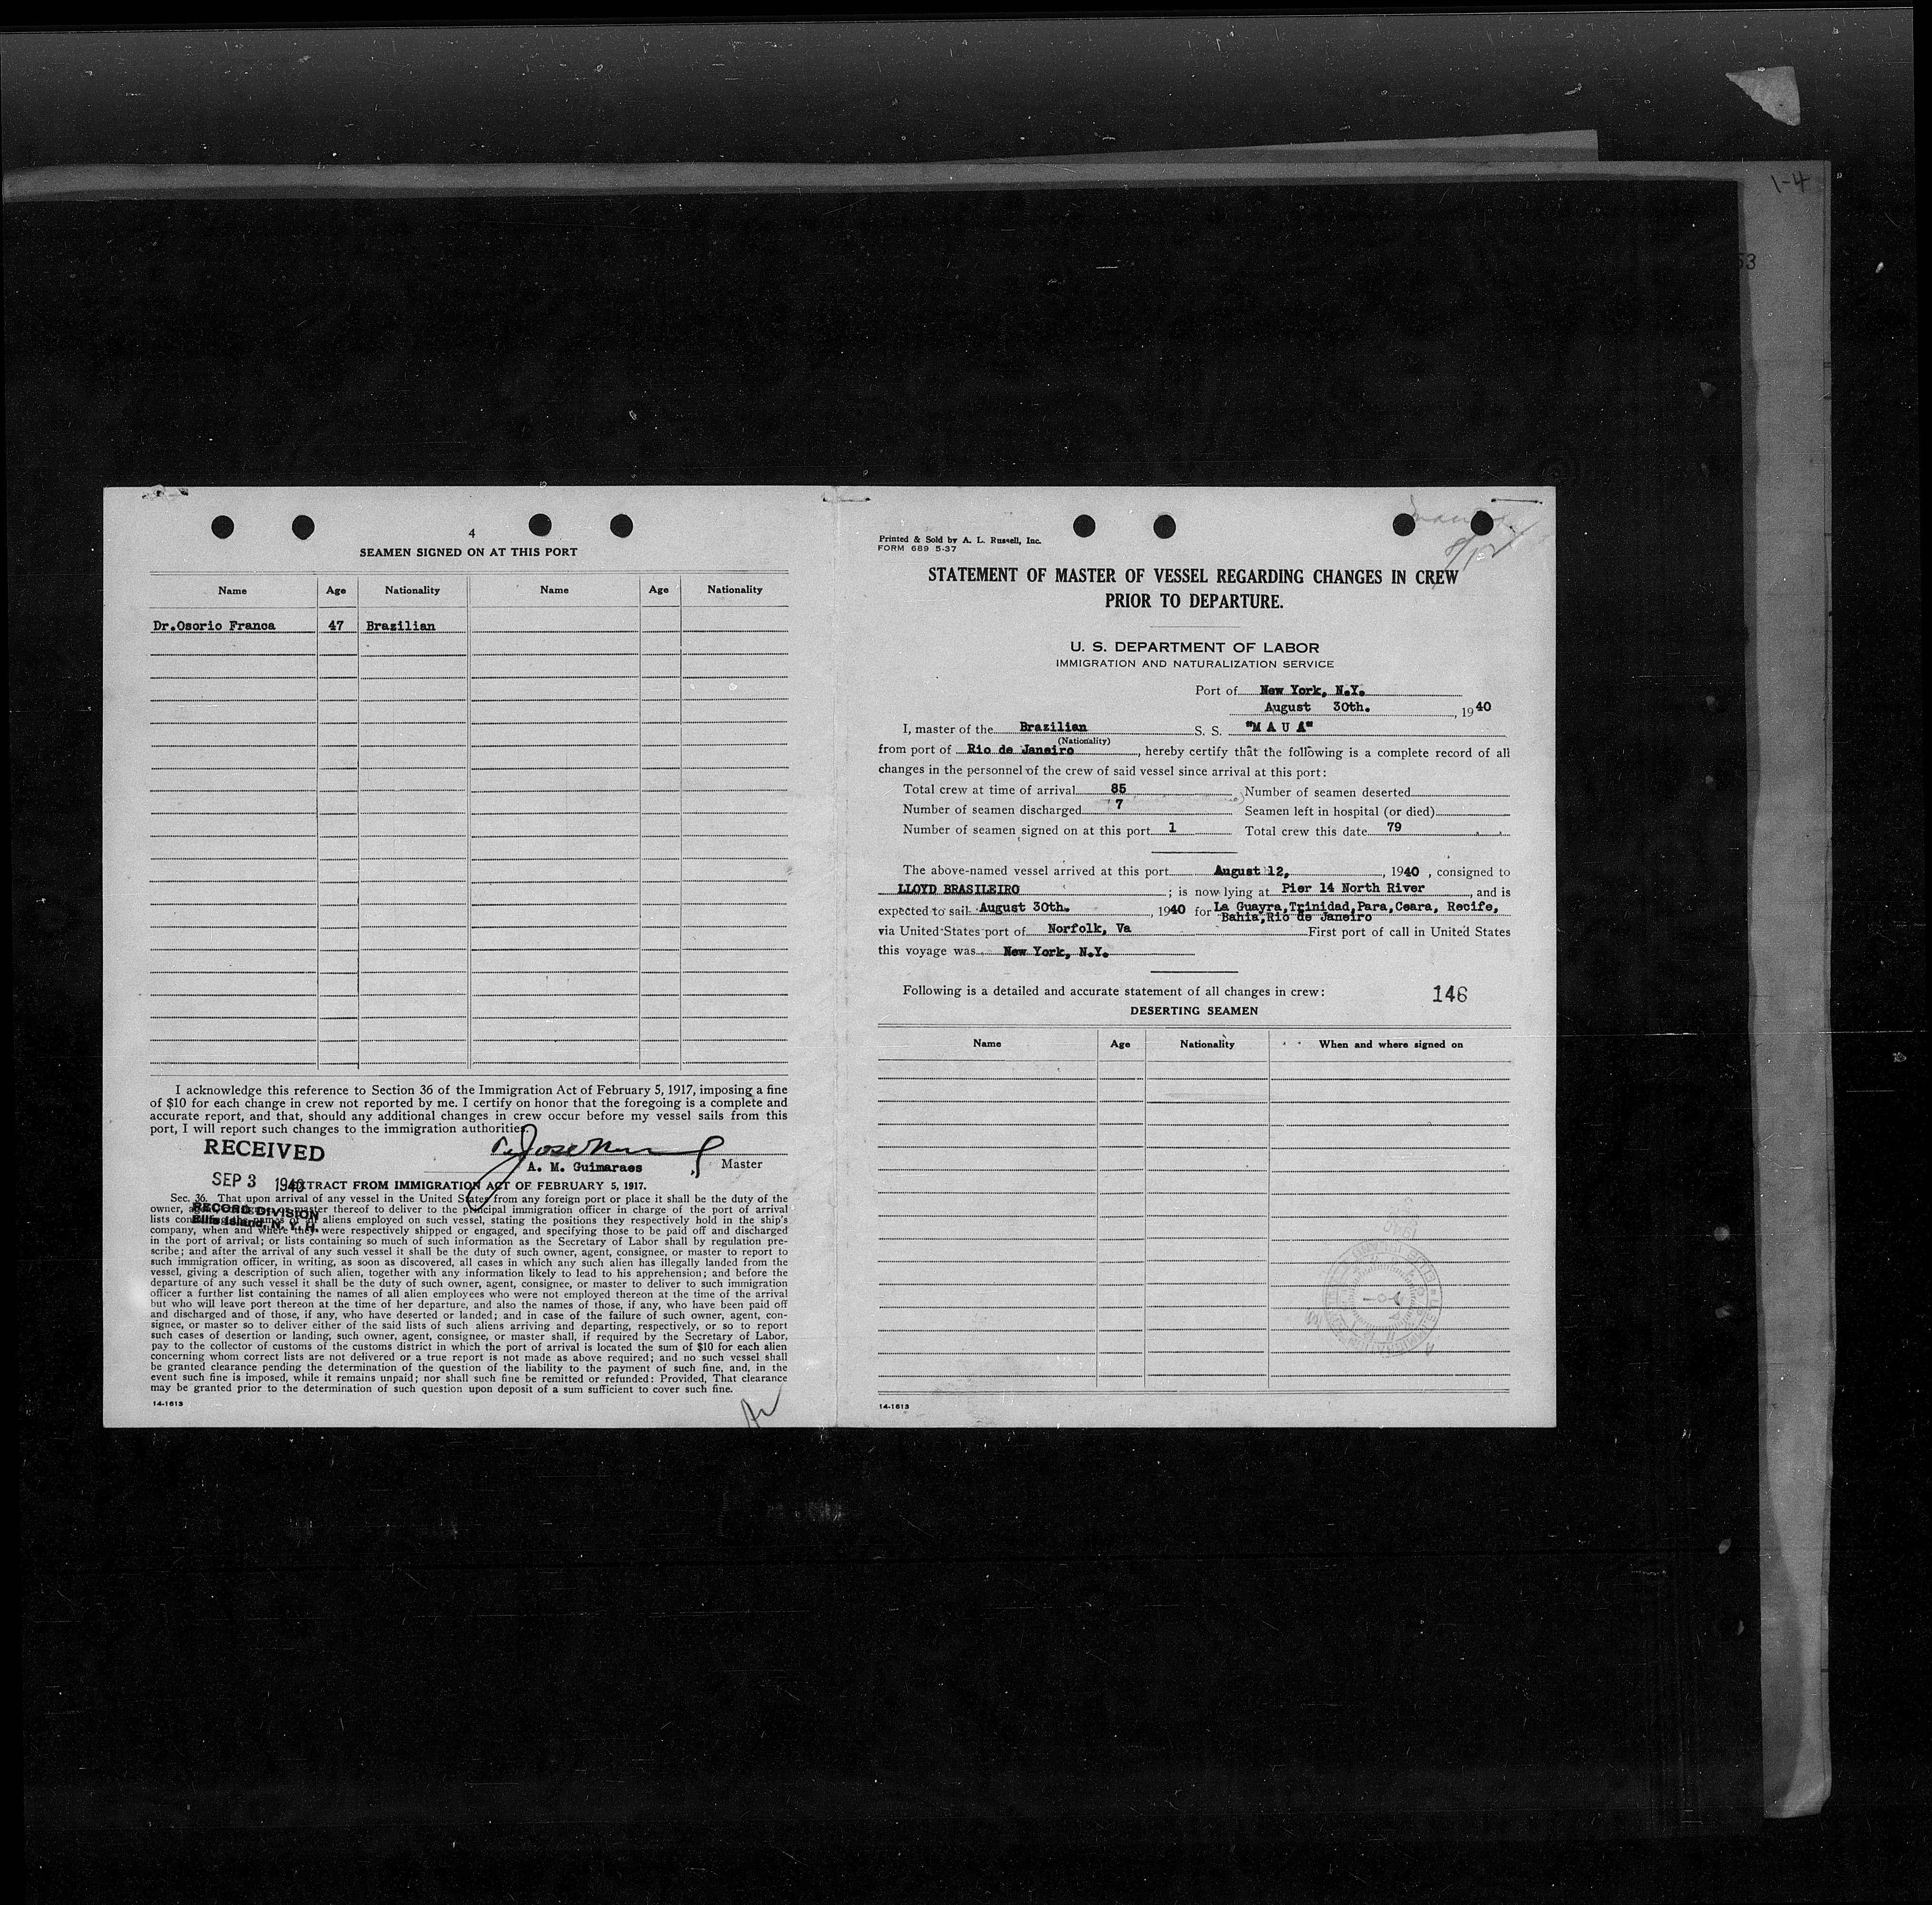 1-4
53
4
SEAMEN SIGNED ON AT THIS PORT
Name Age Nationality Name Age Nationality
Dr.Osorio Franca 47 Brazilian
I acknowledge this reference to Section 36 of the Immigration Act of February 5, 1917, imposing a fine
of $10 for each change in crew not reported by me. I certify on honor that the foregoing is a complete and
accurate report, and that, should any additional changes in crew occur before my vessel sails from this
port, I will report such changes to the immigration authorities.
RECEIVED
A. M. Guimaraes Master
SEP 3 1940
EXTRACT FROM IMMIGRATION ACT OF FEBRUARY 5, 1917.
RECORD DIVISION
Ellis Island, N. Y. H.
Sec. 36. That upon arrival of any vessel in the United States from any foreign port or place it shall be the duty of the
owner, agent, consignee, or master thereof to deliver to the principal immigration officer in charge of the port of arrival
lists containing the names of all aliens employed on such vessel, stating the positions they respectively hold in the ship's
company, when and where they were respectively shipped or engaged, and specifying those to be paid off and discharged
in the port of arrival; or lists containing so much of such information as the Secretary of Labor shall by regulation pre-
scribe; and after the arrival of any such vessel it shall be the duty of such owner, agent, consignee, or master to report to
such immigration officer, in writing, as soon as discovered, all cases in which any such alien has illegally landed from the
vessel, giving a description of such alien, together with any information likely to lead to his apprehension; and before the
departure of any such vessel it shall be the duty of such owner, agent, consignee, or master to deliver to such immigration
officer a further list containing the names of all alien employees who were not employed thereon at the time of the arrival
but who will leave port thereon at the time of her departure, and also the names of those, if any, who have been paid off
and discharged and of those, if any, who have deserted or landed; and in case of the failure of such owner, agent, con-
signee, or master so to deliver either of the said lists of such aliens arriving and departing, respectively, or so to report
such cases of desertion or landing, such owner, agent, consignee, or master shall, if required by the Secretary of Labor,
pay to the collector of customs of the customs district in which the port of arrival is located the sum of $10 for each alien
concerning whom correct lists are not delivered or a true report is not made as above required; and no such vessel shall
be granted clearance pending the determination of the question of the liability to the payment of such fine, and, in the
event such fine is imposed, while it remains unpaid; nor shall such fine be remitted or refunded: Provided, That clearance
may be granted prior to the determination of such question upon deposit of a sum sufficient to cover such fine.
14-1613
Printed & Sold by A. L. Russell, Inc.
FORM 689 5-37
STATEMENT OF MASTER OF VESSEL REGARDING CHANGES IN CREW
PRIOR TO DEPARTURE.
U. S. DEPARTMENT OF LABOR
IMMIGRATION AND NATURALIZATION SERVICE
Port of New York, N.Y.
August 30th. , 1940
I, master of the Brazilian S. S. "M A U A"
(Nationality)
from port of Rio de Janeiro , hereby certify that the following is a complete record of all
changes in the personnel of the crew of said vessel since arrival at this port:
Total crew at time of arrival 85 Number of seamen deserted
Number of seamen discharged 7 Seamen left in hospital (or died)
Number of seamen signed on at this port 1 Total crew this date 79
The above-named vessel arrived at this port August 12, , 1940 , consigned to
LLOYD BRASILEIRO ; is now lying at Pier 14 North River , and is
expected to sail August 30th. , 1940 for La Guayra,Trinidad,Para,Ceara, Recife,
Bahia,Rio de Janeiro
via United States port of Norfolk, Va First port of call in United States
this voyage was New York, N.Y.
Following is a detailed and accurate statement of all changes in crew: 146
DESERTING SEAMEN
Name Age Nationality When and where signed on
14-1613